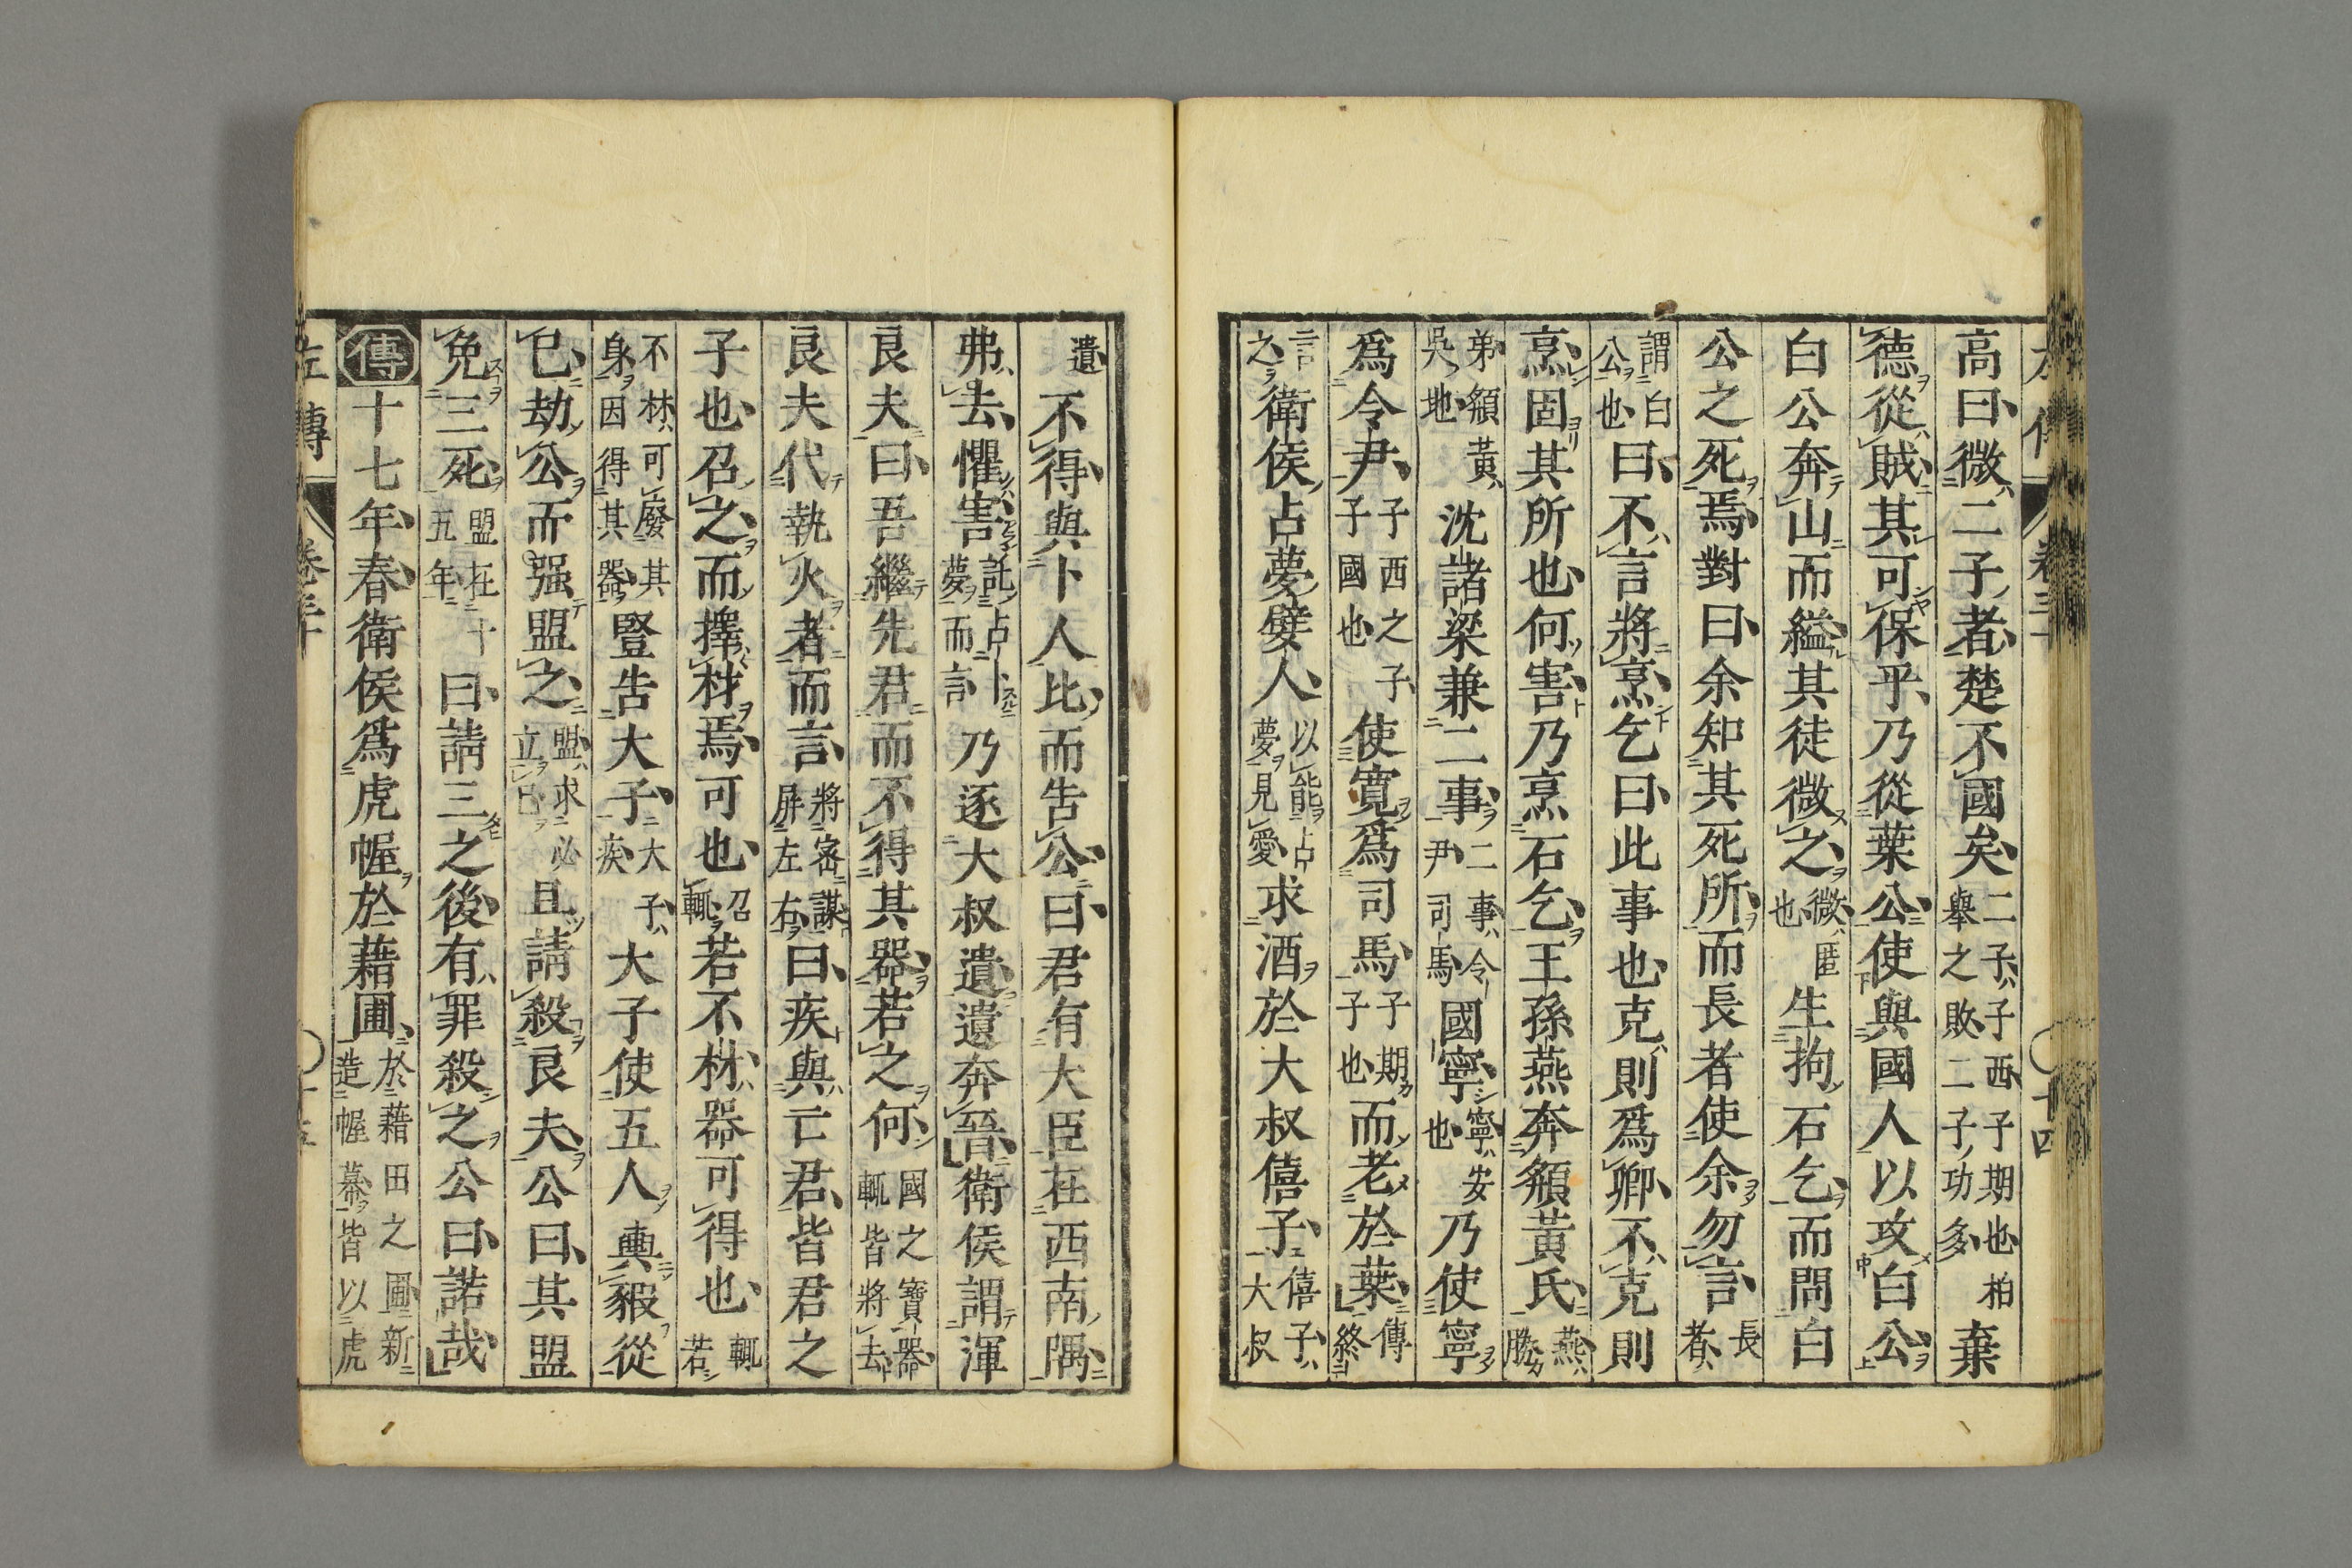 高曰微二子者楚不國矣二子子西子期也柏舉之敗二子功多棄
德從賊其可保乎乃從葉公使與國人以攻白公
白公奔山而縊其徒微之微匿也生拘石乞而問白
公之死焉對曰余知其死所而長者使余勿言長者
謂白公也曰不言將烹乞曰此事也克則爲卿不克則
烹固其所也何害乃烹石乞王孫燕奔頯黃氏燕勝
弟頯黃吳地沈諸梁兼二事二事令尹司馬國寧寧安也乃使寧
爲令尹子西之子子國也使寬爲司馬子期子也而老於葉傳終
言之衛侯占夢嬖人以能占夢見愛求酒於大叔僖子僖子大叔
遺不得與卜人比而告公曰君有大臣在西南隅
弗去懼害託占卜夢而言乃逐大叔遺遺奔晉衛侯謂渾
良夫曰吾繼先君而不得其器若之何國之寶器輒皆將去
良夫代執火者而言將密謀屏左右曰疾與亡君皆君之
子也召之而擇材焉可也召輒若不材器可得也輒若
不材可廢其身因得其器豎告大子大子疾大子使五人輿豭從
已劫公而强盟之盟求必立已且請殺良夫公曰其盟
免三死盟在十五年曰請三之後有罪殺之公曰諾哉
傳十七年春衛侯爲虎幄於藉圃於藉田之圃新造幄幕皆以虎
左傳 卷三十